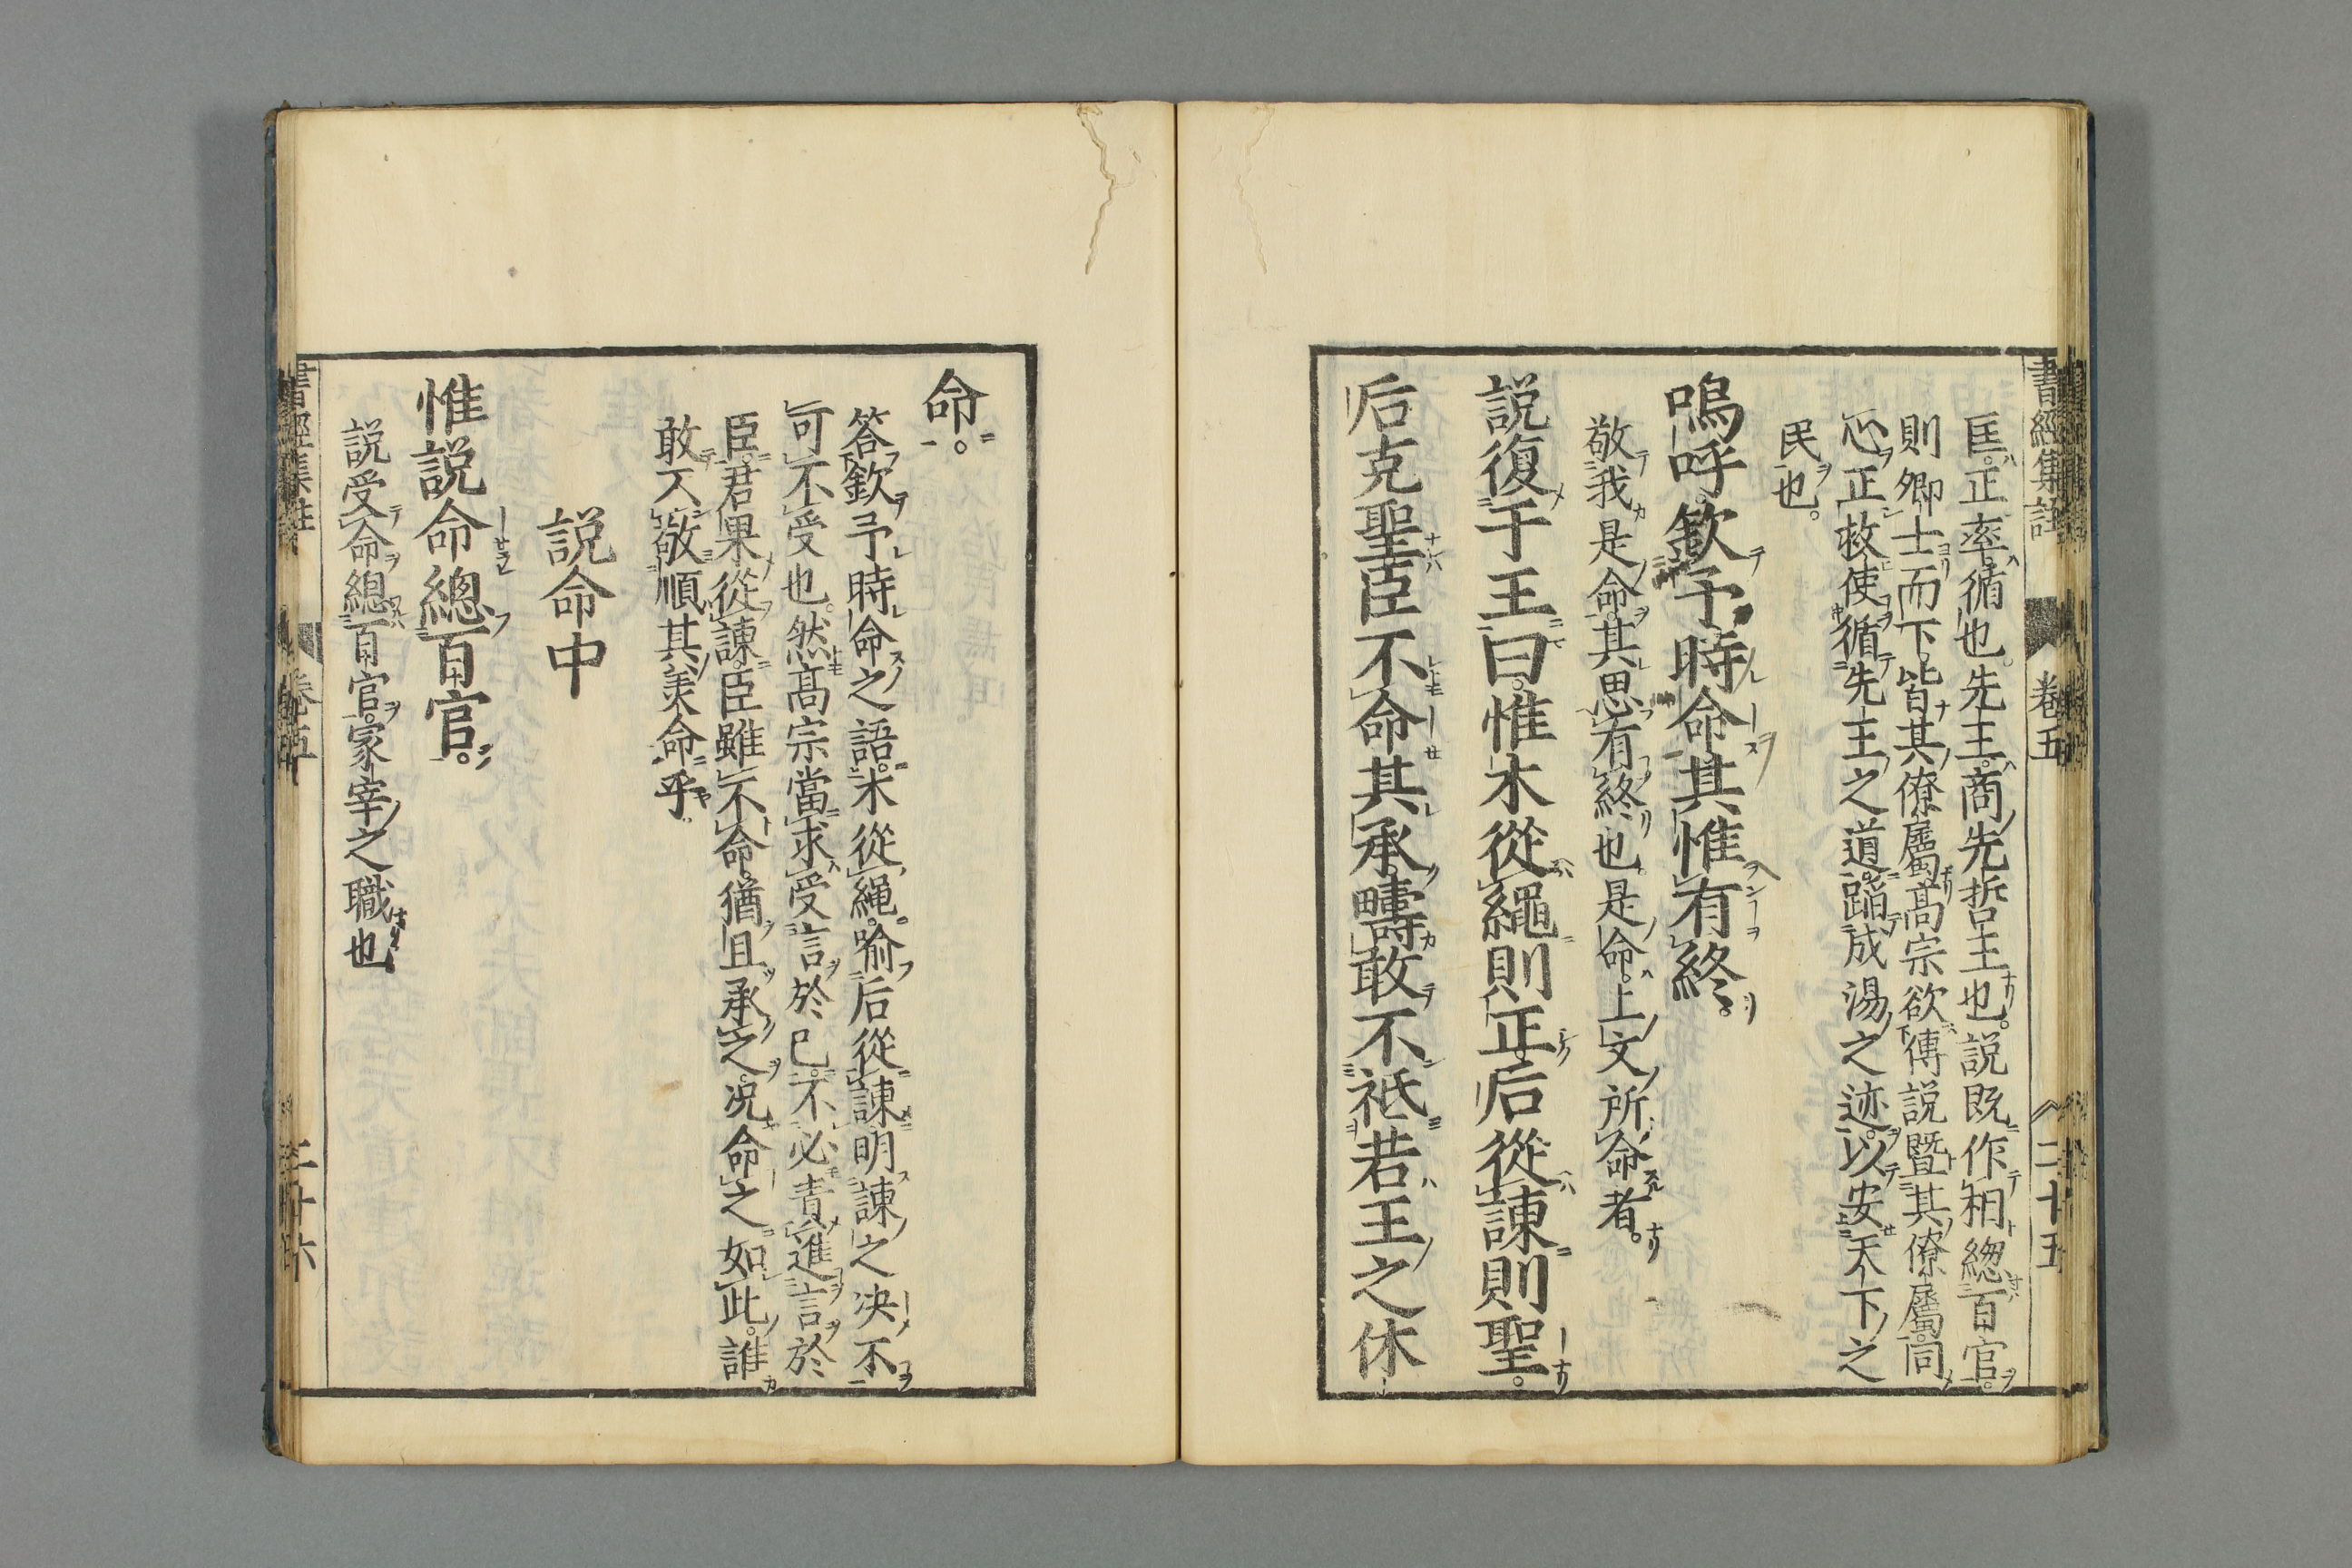 書經集註 卷五 二十五
匡正率循也先王商先哲王也説既作相總百官
則卿士而下皆其僚屬高宗欲傅説曁其僚屬同
心正救使循先王之道蹈成湯之迹以安天下之
民也
嗚呼欽予時命其惟有終
敬我是命其思有終也是命上文所命者
説復于王曰惟木從繩則正后從諫則聖
后克聖臣不命其承疇敢不祗若王之休
命
答欽予時命之語木從繩喩后從諫明諫之決不
可不受也然高宗當求受言於己不必責進言於
臣君果從諫臣雖不命猶且承之况命之如此誰
敢不敬順其美命乎
説命中
惟説命總百官
説受命總百官冢宰之職也
書經集註 卷五